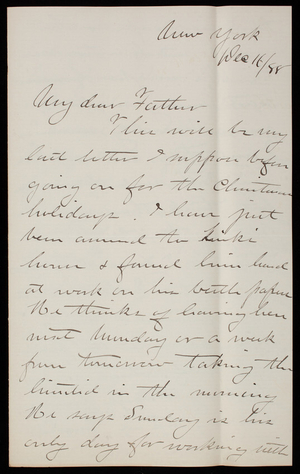 New York
Dec 16/88
My dear Father
This will be my
last letter I suppose before
going on for the Christmas
holidays. I have just
been around to
house & found him hard
at work on his battle papers
He thinks of leaving here
next Monday or a week
from tomorrow taking the
limited in the morning
He says Sunday is his
only day for working with